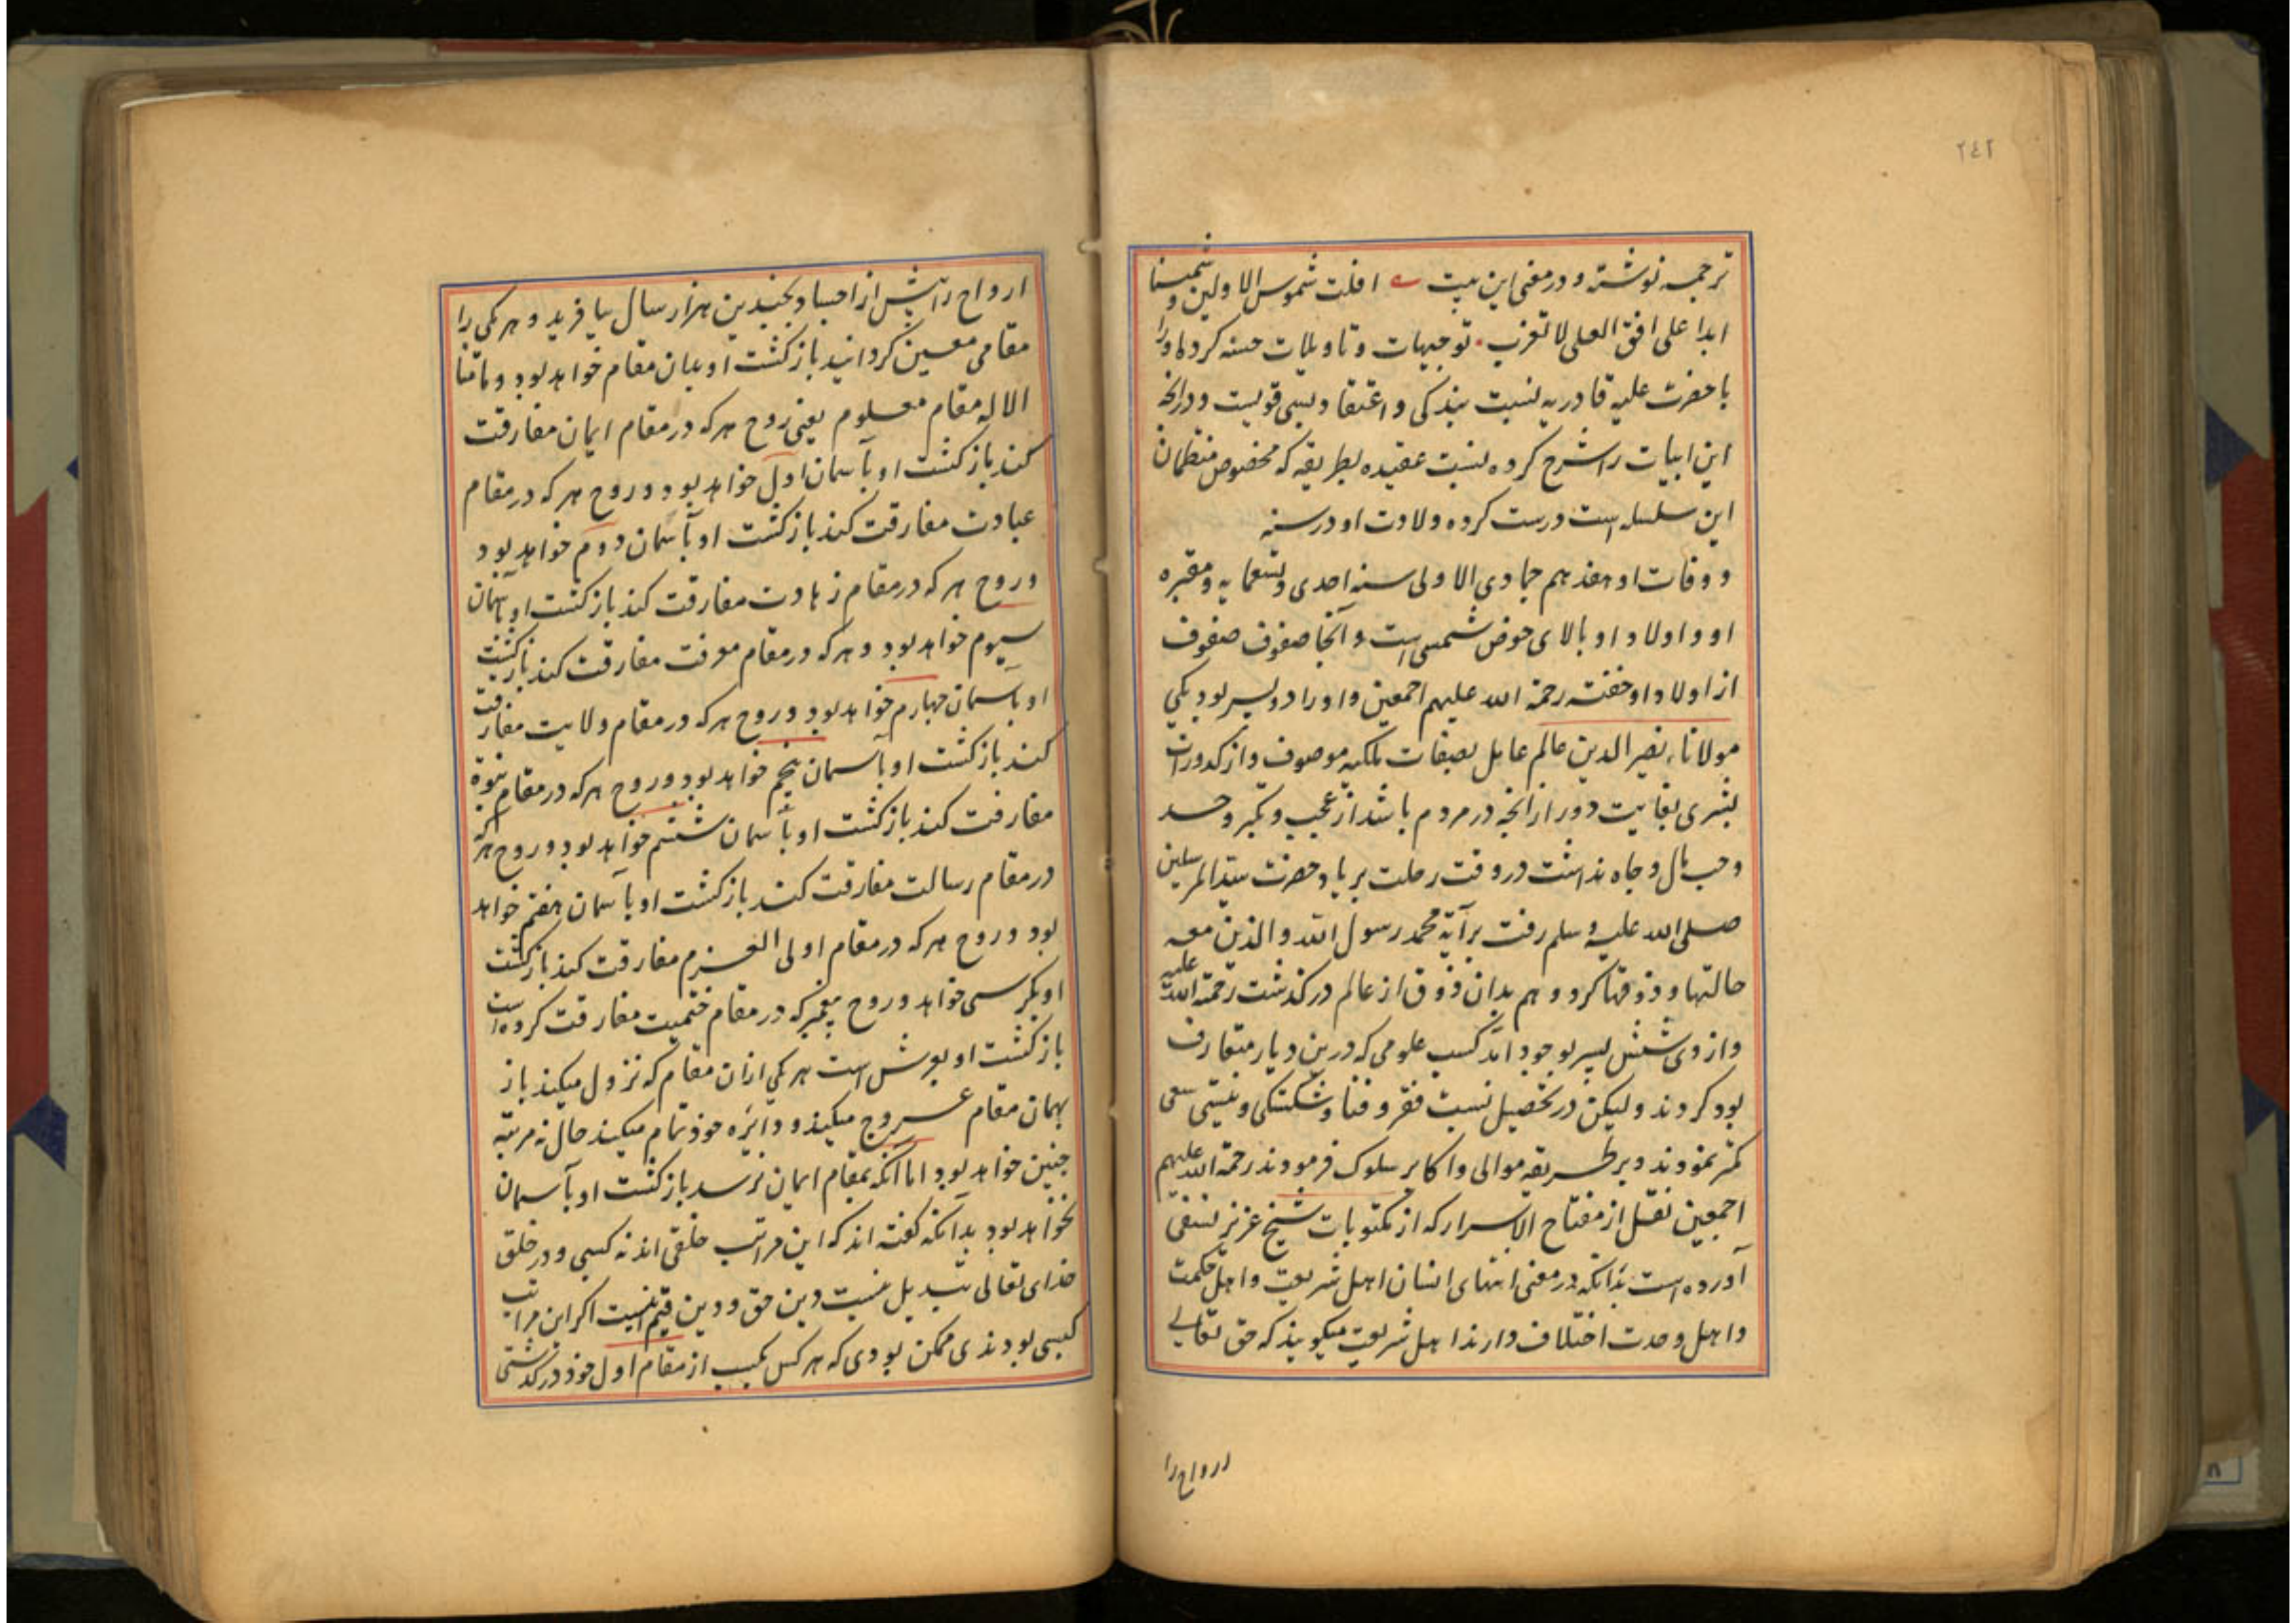 ٢٤٢
ترجمه نوشته و در معنی این بیت افلت شموس الاولین و شمسنا
ابدا علی افق العلی لا تغرب توجیهات و تاویلات حسنه کرده او را
با حضرت علیه قادریه نسبت بندکی و اعتقاد بسی قویست و در آنکه
این ابیات را شرح کرده نسبت عقیده بطریقه که مخصوص منتظمان
این سلسله است درست کرده ولادت او در سنه
و وفات او هفدهم جمادی الاولی سنه احدی و تسعمایه و مقبره
او و اولاد او بالای حوض شمسی است و آنجا صفوف صفوف
از اولاد او خفته رحمة الله علیهم اجمعین و او را دو پسر بود یکی
مولانا نصیر الدین عالم عامل بصفات ملکیه موصوف و از کدورات
بشری بغایت دور از آنچه در مردم باشد از عجب و تکبر و حسد
و حب مال و جاه نداشت در وقت رحلت بر یاد حضرت سید المرسلین
صلی الله علیه و سلم رفت بر آیة محمد رسول الله و الذین معه
حالتها و ذوقها کرد و هم بدان ذوق از عالم درکذشت رحمة الله علیه
و از وی شش پسر بوجود آمد کسب علومی که درین دیار متعارف
بود کردند و لیکن در تحصیل نسبت فقر و فنا و شکستکی و نیستی سعی
کمتر نمودند و بر طریقه موالی و اکابر سلوک فرمودند رحمة الله علیهم
اجمعین نقل از مفتاح الاسرار که از مکتوبات شیخ عزیز نسفی
آورده است بدانکه در معنی انتهای انسان اهل شریعت و اهل حکمت
و اهل وحدت اختلاف دارند اهل شریعت میکویند که حق تعالی
ارواح را
ارواح را پیش از اجساد بچندین هزار سال بیافرید و هر یکی را
مقامی معین کردانید بازکشت او بدان مقام خواهد بود و مامنا
الا له مقام معلوم یعنی روح هر که در مقام ایمان مفارقت
کند بازکشت او بآسمان اول خواهد بود و روح هر که در مقام
عبادت مفارقت کند بازکشت او بآسمان دوم خواهد بود
و روح هر که در مقام زهادت مفارقت کند بازکشت او بآسمان
سیوم خواهد بود و هر که در مقام معرفت مفارقت کند بازکشت
او بآسمان چهارم خواهد بود و روح هر که در مقام ولایت مفارقت
کند بازکشت او بآسمان پنجم خواهد بود و روح هر که در مقام نبوة
مفارقت کند بازکشت او بآسمان ششم خواهد بود و روح هر که
در مقام رسالت مفارقت کند بازکشت او بآسمان هفتم خواهد
بود و روح هر که در مقام اولی العزم مفارقت کند بازکشت
او بکرسی خواهد و روح پیغمبر که در مقام ختمیت مفارقت کرده است
بازکشت او بعرش است هر یکی از آن مقام که نزول میکند باز
بهمان مقام عروج میکند و دایره خود تمام میکند حال نه مرتبه
چنین خواهد بود اما آنکه بمقام ایمان نرسد بازکشت او بآسمان
نخواهد بود بدانکه کفته اند که این مراتب خلقی اند نه کسبی و در خلق
خدای تعالی تبدیل نیست دین حق و دین قیم اینست اکر این مراتب
کسبی بودندی ممکن بودی که هر کس بکسب از مقام اول خود درکذشتی